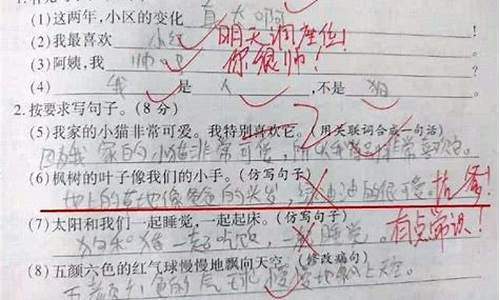 (1)这两年,小区的变化 真大啊
(2)我最喜欢 小红 明天调座位!
(3)阿姨,我 帅 你很帅!
(4) 我 是 人 ,不是 狗
2.按要求写句子。(8 分)
(5)我家的小猫非常可爱。我特别喜欢它。(用关联词合成一句话)
因为我家的小猫非常可爱,所以我 非常喜欢它。
(6)枫树的叶子像我们的小手。(仿写句子)
地上的草地像爸爸的头发,绿油油的很可爱。 找爹!
(7)太阳和我们一起睡觉,一起起床。(仿写句子)
狗和猪一起吃饭,一起睡觉。 有点常识!
(8)五颜六色的红气球慢慢地飘向天空。(修改病句)
五颜六色的气球慢慢地飘上天空。